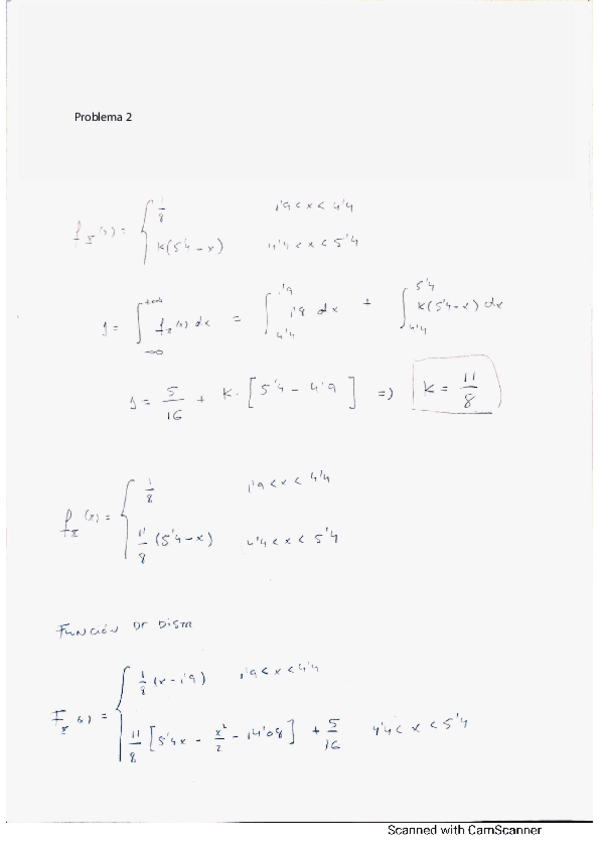 Problema 2
f_X(x) = { 1/8    1'9 < x < 4'4
K(5'4-x)    4'4 < x < 5'4
1 = ∫_{-∞}^{+∞} f_X(x) dx = ∫_{4'4}^{1'9} 1'8 dx + ∫_{4'4}^{5'4} K(5'4-x) dx
1 = 5/16 + K · [5'4 - 4'9] => K = 11/8
f_X(x) = { 1/8    1'9 < x < 4'4
11/8 (5'4-x)    4'4 < x < 5'4
FUNCIÓN DE DISTR
F_X(x) = { 1/8 (x-1'9)    1'9 < x < 4'4
11/8 [5'4x - x²/2 - 14'08] + 5/16    4'4 < x < 5'4
Scanned with CamScanner